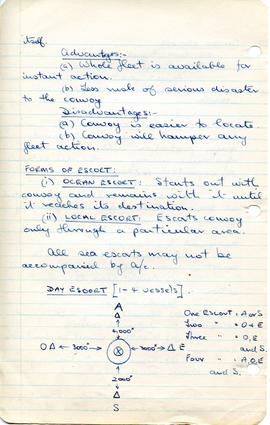 itself.
Advantages:-
(a) Whole fleet is available for
instant action.
(b) Less risk of serious disaster
to the convoy
Disadvantages:-
(a) Convoy is easier to locate.
(b) Convoy will hamper any
fleet action.
FORMS OF ESCORT:
(i) OCEAN ESCORT: Starts out with
convoy and remains with it until
it reaches its destination.
(ii) LOCAL ESCORT: Escorts convoy
only through a particular area.
All sea escorts may not be
accompanied by a/c.
DAY ESCORT [1-4 vessels].
A
4,000ˣ
O Δ ← 3000ˣ → ⊗ ← 3000ˣ → Δ E
2000ˣ
Δ
S
One Escort : A or S
Two " : O & E
Three " : O, E
and S.
Four " : A, O, E
and S.